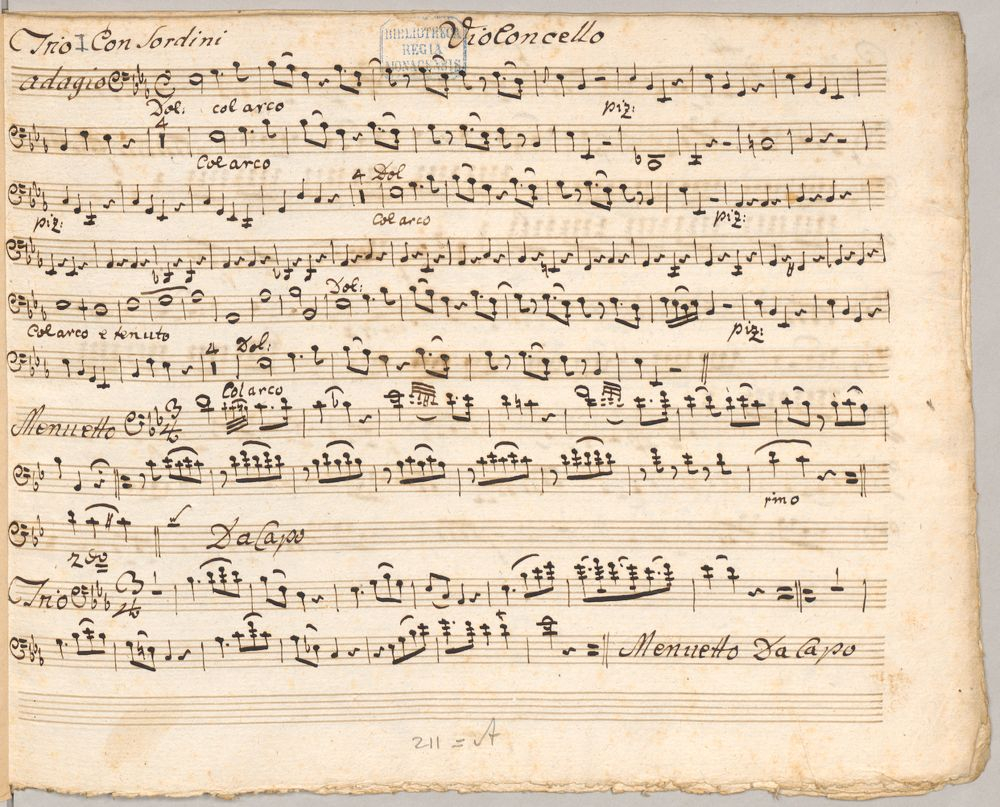 Trio I Con Sordini Violoncello
BIBLIOTHECA
REGIA
MONACENSIS
adagio
Dol: col arco piz:
4
Col arco
4 Dol
piz: Col arco piz:
Dol:
Col arco e tenuto piz:
4 Dol:
Col arco
Menuetto 3
4
pmo
2do Da Capo
Trio 3
4
Menuetto Da Capo
211 = A